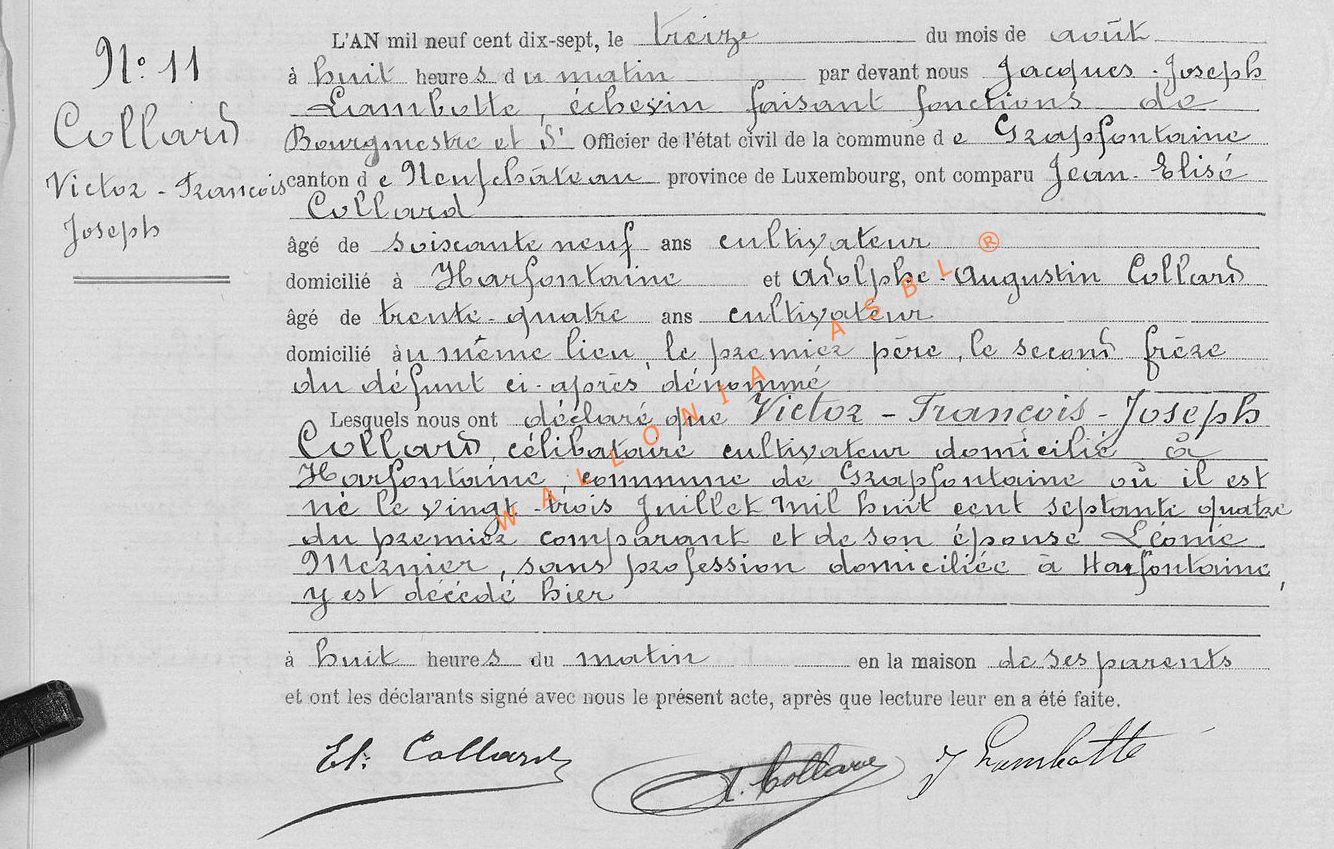 N° 11
Collard
Victor - François
Joseph
L'AN mil neuf cent dix-sept, le treize du mois de août
à huit heures du matin par devant nous Jacques - Joseph
Lambotte, échevin faisant fonctions de
Bourgmestre et Officier de l'état civil de la commune de Grapfontaine
canton de Neufchâteau province de Luxembourg, ont comparu Jean - Elisé
Collard
âgé de soixante neuf ans cultivateur
domicilié à Harfontaine et Adolphe - Augustin Collard
âgé de trente - quatre ans cultivateur
domicilié au même lieu, le premier père, le second frère
du défunt ci-après dénommé
Lesquels nous ont déclaré que Victor - François - Joseph
Collard, célibataire cultivateur domicilié à
Harfontaine, commune de Grapfontaine où il est
né le vingt-trois Juillet mil huit cent septante quatre
du premier comparant et de son épouse Léonie
Meznier, sans profession domiciliée à Harfontaine,
y est décédé hier
à huit heures du matin en la maison de ses parents
et ont les déclarants signé avec nous le présent acte, après que lecture leur en a été faite.
El: Collard
A. Collard
J Lambotte
WALLONIA ASBL ®